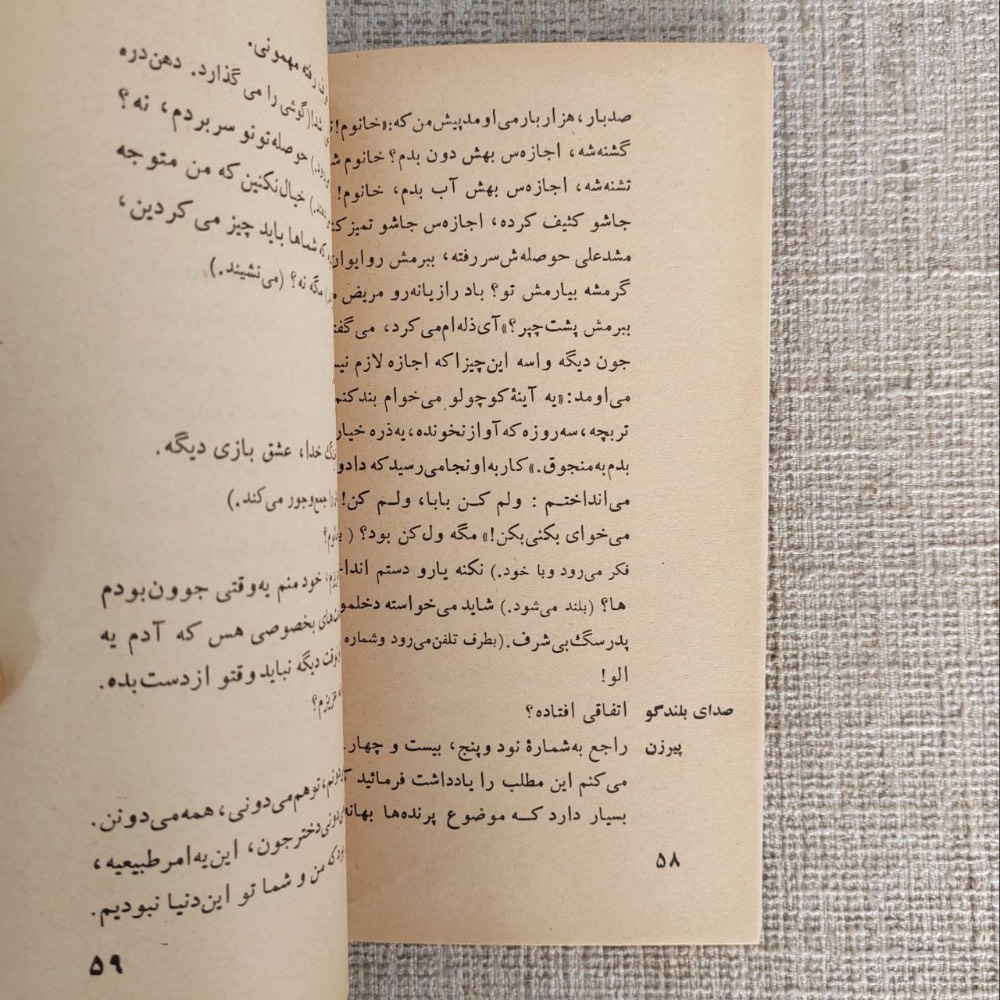 صدبار، هزار بار می‌اومد پیش من که: «خانوم!
گشنه‌شه، اجازه‌س بهش دون بدم؟ خانوم
تشنه‌شه، اجازه‌س بهش آب بدم، خانوم!
جاشو کثیف کرده، اجازه‌س جاشو تمیز
مشدعلی حوصله‌ش سر رفته، ببرمش رو ایوان
گرمشه بیارمش تو؟ باد رازیانه‌رو مریض
ببرمش پشت چپر؟» آی ذله‌ام می‌کرد،
جون دیگه واسه این چیزا که اجازه لازم
می‌اومد: «یه آینهٔ کوچولو می‌خوام بند کنم
تربچه، سه روزه که آواز نخونده، یه ذره خیار
بدم به منجوق.» کار به اونجا می‌رسید که
می‌انداختم: ولم کن بابا، ولم کن!
می‌خوای بکنی بکن!» مگه ول‌کن بود؟ (
فکر می‌رود و با خود.) نکنه یارو دستم
ها؟ (بلند می‌شود.) شاید می‌خواسته
پدر سگ بی‌شرف. (بطرف تلفن می‌رود و شماره
الو!
صدای بلندگو اتفاقی افتاده؟
پیرزن راجع به شمارهٔ نود و پنج، بیست و چهار
می‌کنم این مطلب را یادداشت فرمائید
بسیار دارد که موضوع پرنده‌ها بهانه
۵۸
رفته مهمونی.
(گوشی را می‌گذارد. دهن‌دره
حوصله‌تونو سر بردم، نه؟
خیال نکنین که من متوجه
که شماها باید چیز می‌کردین،
مگه نه؟ (می‌نشیند.)
خدا، عشق بازی دیگه.
جمع و جور می‌کند.)
خود منم یه وقتی جوون بودم
بخصوصی هس که آدم یه
وقت دیگه نباید وقتو از دست بده.
عزیزم؟
تو هم می‌دونی، همه می‌دونن.
دختر جون، این یه امر طبیعیه،
که من و شما تو این دنیا نبودیم.
۵۹